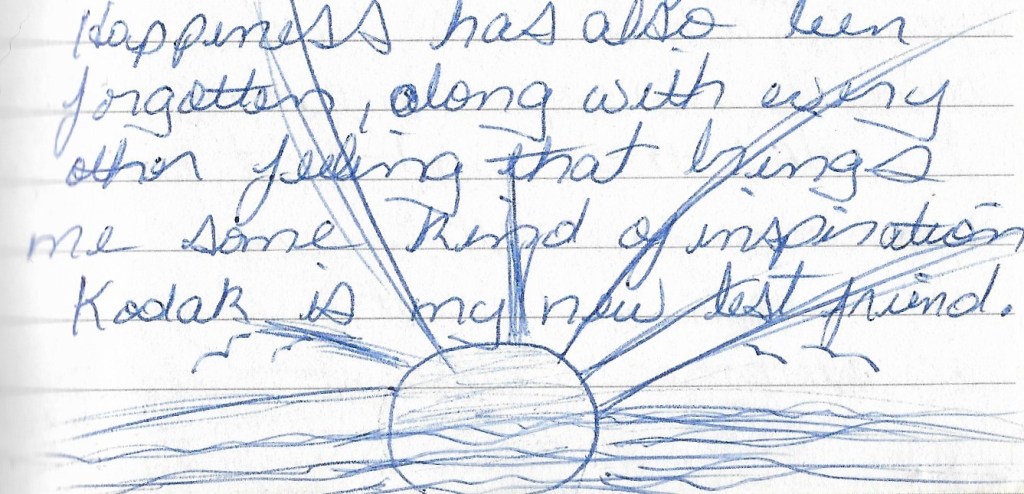 Happiness has also been
forgotten, along with every
other feeling that brings
me some kind of inspiration
Kodak is my new best friend.